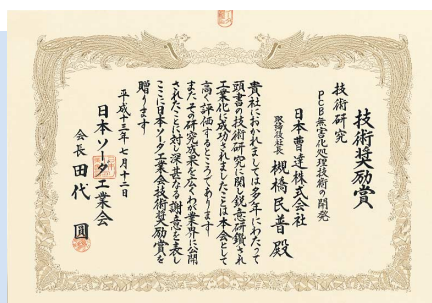 技術奨励賞
技術研究
PCB無害化処理技術の開発
日本曹達株式会社
取締役社長 槻橋民普殿
貴社におかれましては多年にわたって
頭書の技術研究に関し鋭意研鑽され
工業化に成功されましたことは本会として
高く評価するところであります
またその研究成果を広くわが業界に公開
されたことに対し深甚なる謝意を表し
ここに日本ソーダ工業会技術奨励賞を
贈ります
平成十三年七月十二日
日本ソーダ工業会
会長 田代圓